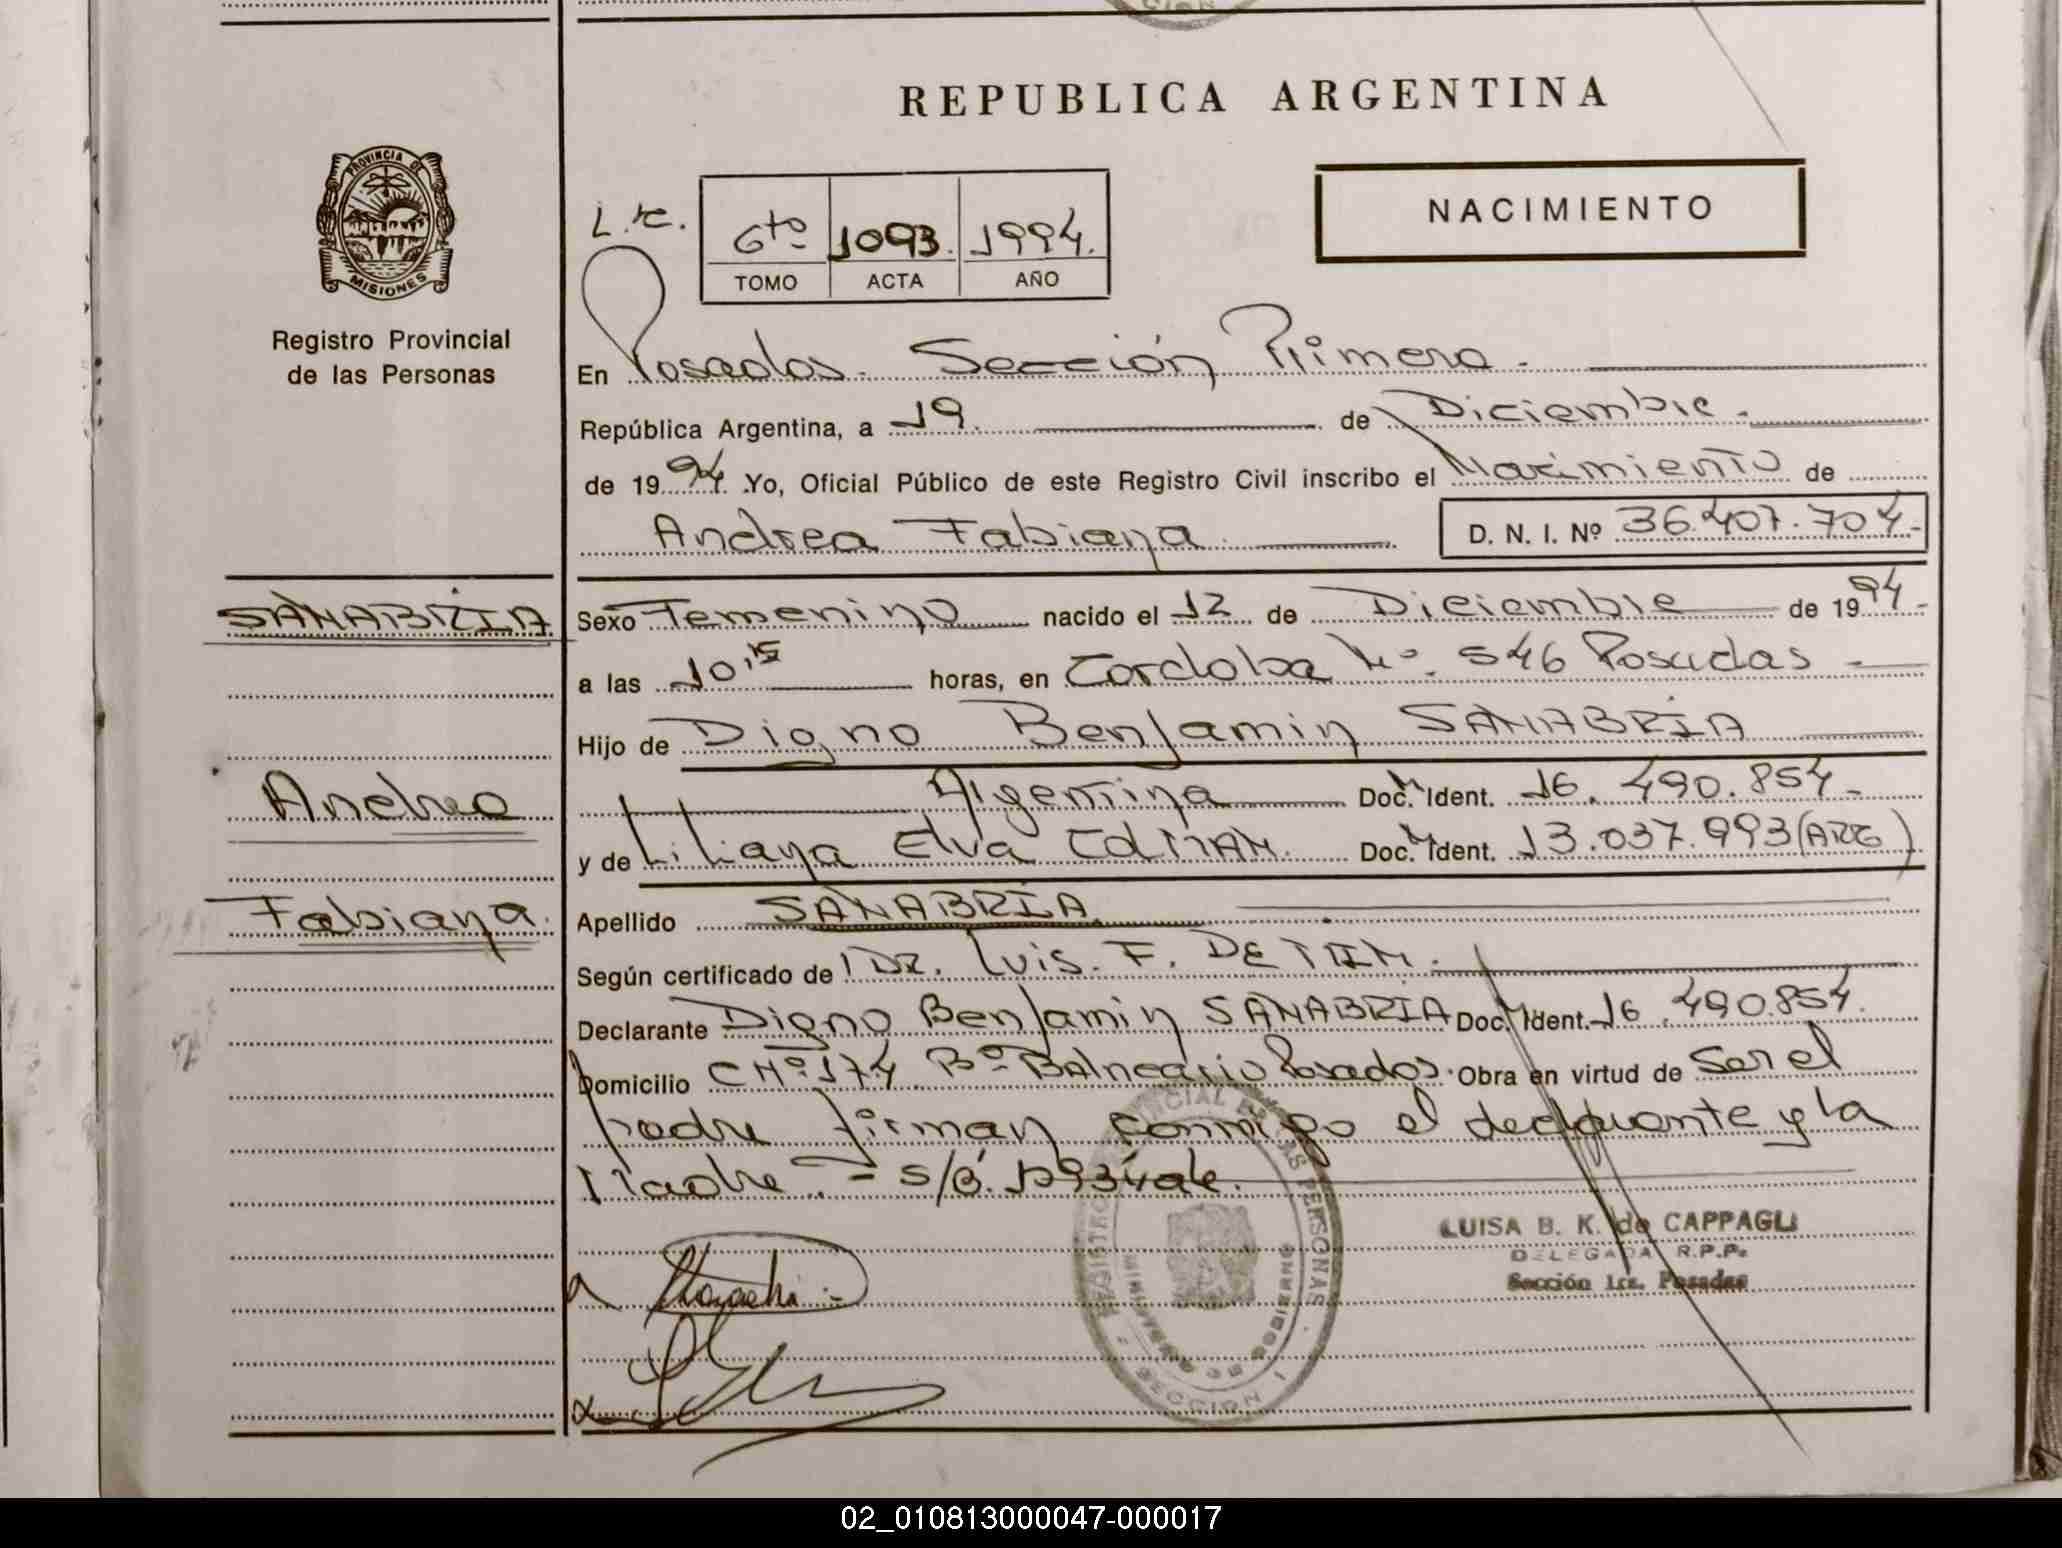 REPUBLICA ARGENTINA
PROVINCIA DE
MISIONES
Registro Provincial
de las Personas
NACIMIENTO
6to 1093. 1994.
TOMO ACTA AÑO
En Posadas. Sección Primera.
República Argentina, a 19. de Diciembre.
de 1994. Yo, Oficial Público de este Registro Civil inscribo el Nacimiento de
Andrea Fabiana D. N. I. Nº 36.407.704.-
SANABRIA
Sexo Femenino nacido el 12 de Diciembre de 1994.-
a las 10,15 horas, en Cordoba Nº. 546 Posadas -
Hijo de Digno Benjamin SANABRIA
Andrea
Argentina Doc. Ident. 16.490.854.-
y de Liliana Elva COLMAN. Doc. Ident. 13.037.993 (ARG)
Fabiana.
Apellido SANABRIA.
Según certificado de Dr. Luis. F.
Declarante Digno Benjamin SANABRIA Doc. Ident. 16.490.854.
Domicilio CH º 174 Bº Balneario Posados. Obra en virtud de Ser el
padre firman conmigo el declarante y la
Madre. -
LUISA B. K. de CAPPAGLI
DELEGADA R.P.P.
Sección 1ra. Posadas
SECCION 1
02_010813000047-000017